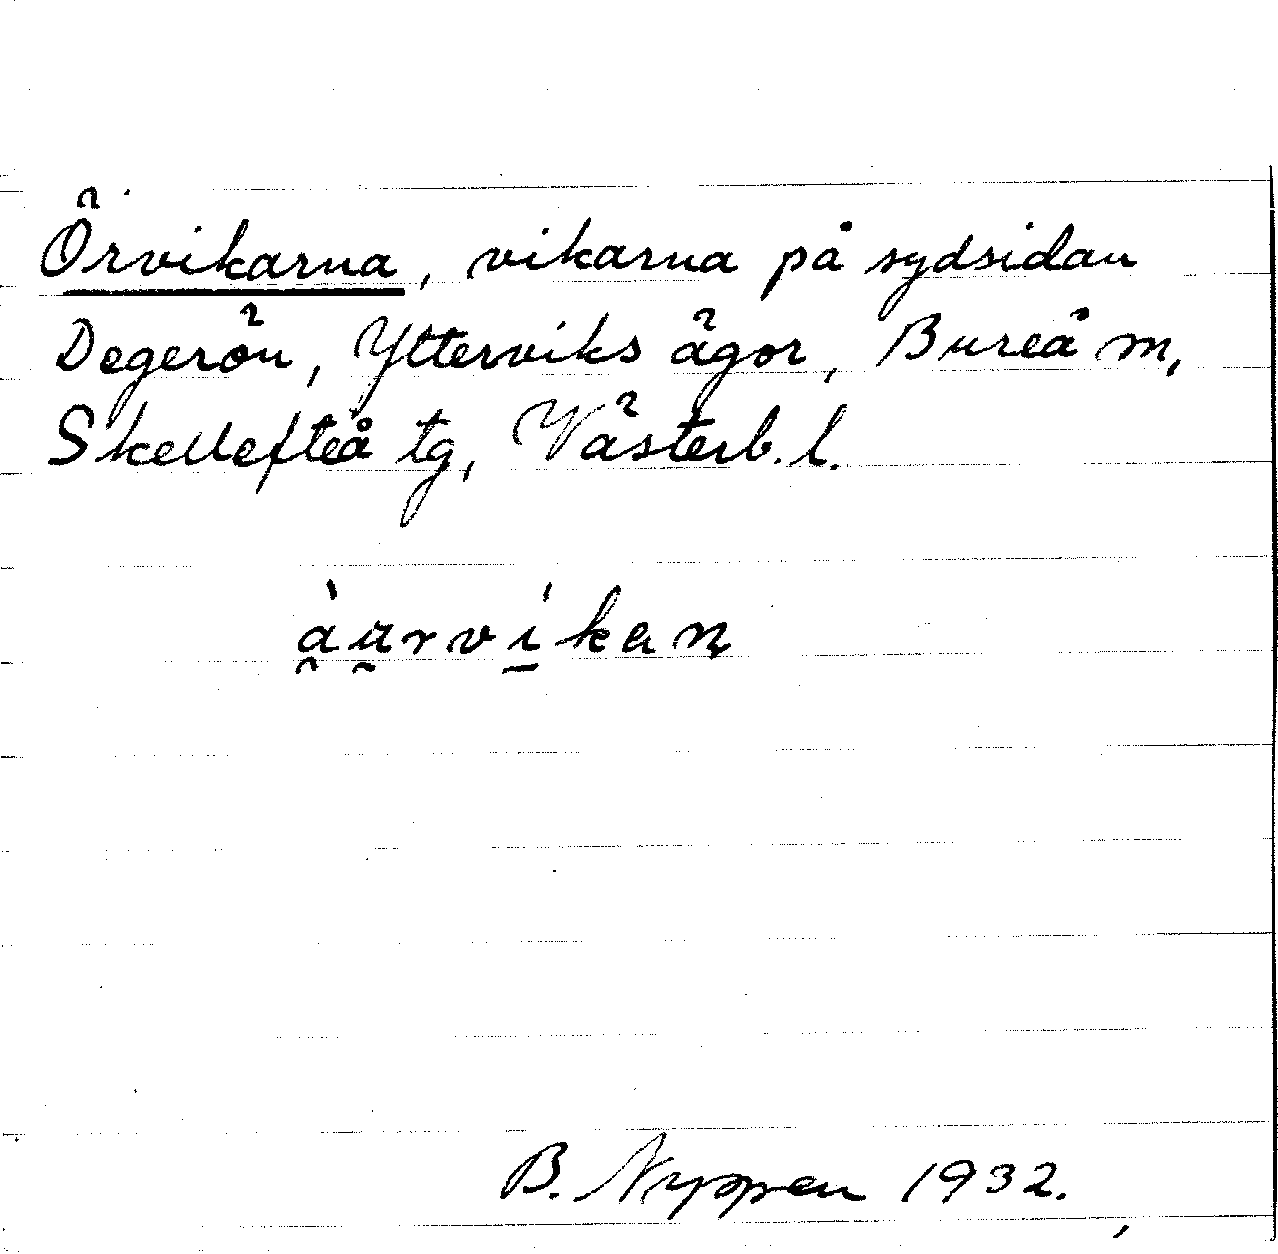 Örvikarna, vikarna på sydsidan
Degerön, Ytterviks ägor, Bureå m,
Skellefteå tg, Västerb. l.
B. Nyppen 1932.